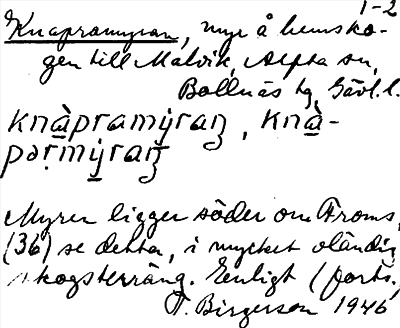 1-2
Knapramyran, myr å hemsko-
gen till Malvik, Alfta sn,
Bollnäs tg, Gävl. l.
knàpramýraŋ, knà-
pərmýraŋ
Myren ligger söder om Froms,
(36) se detta, i mycket oländig
skogsterräng. Enligt (forts.,
T. Birgerson 1946